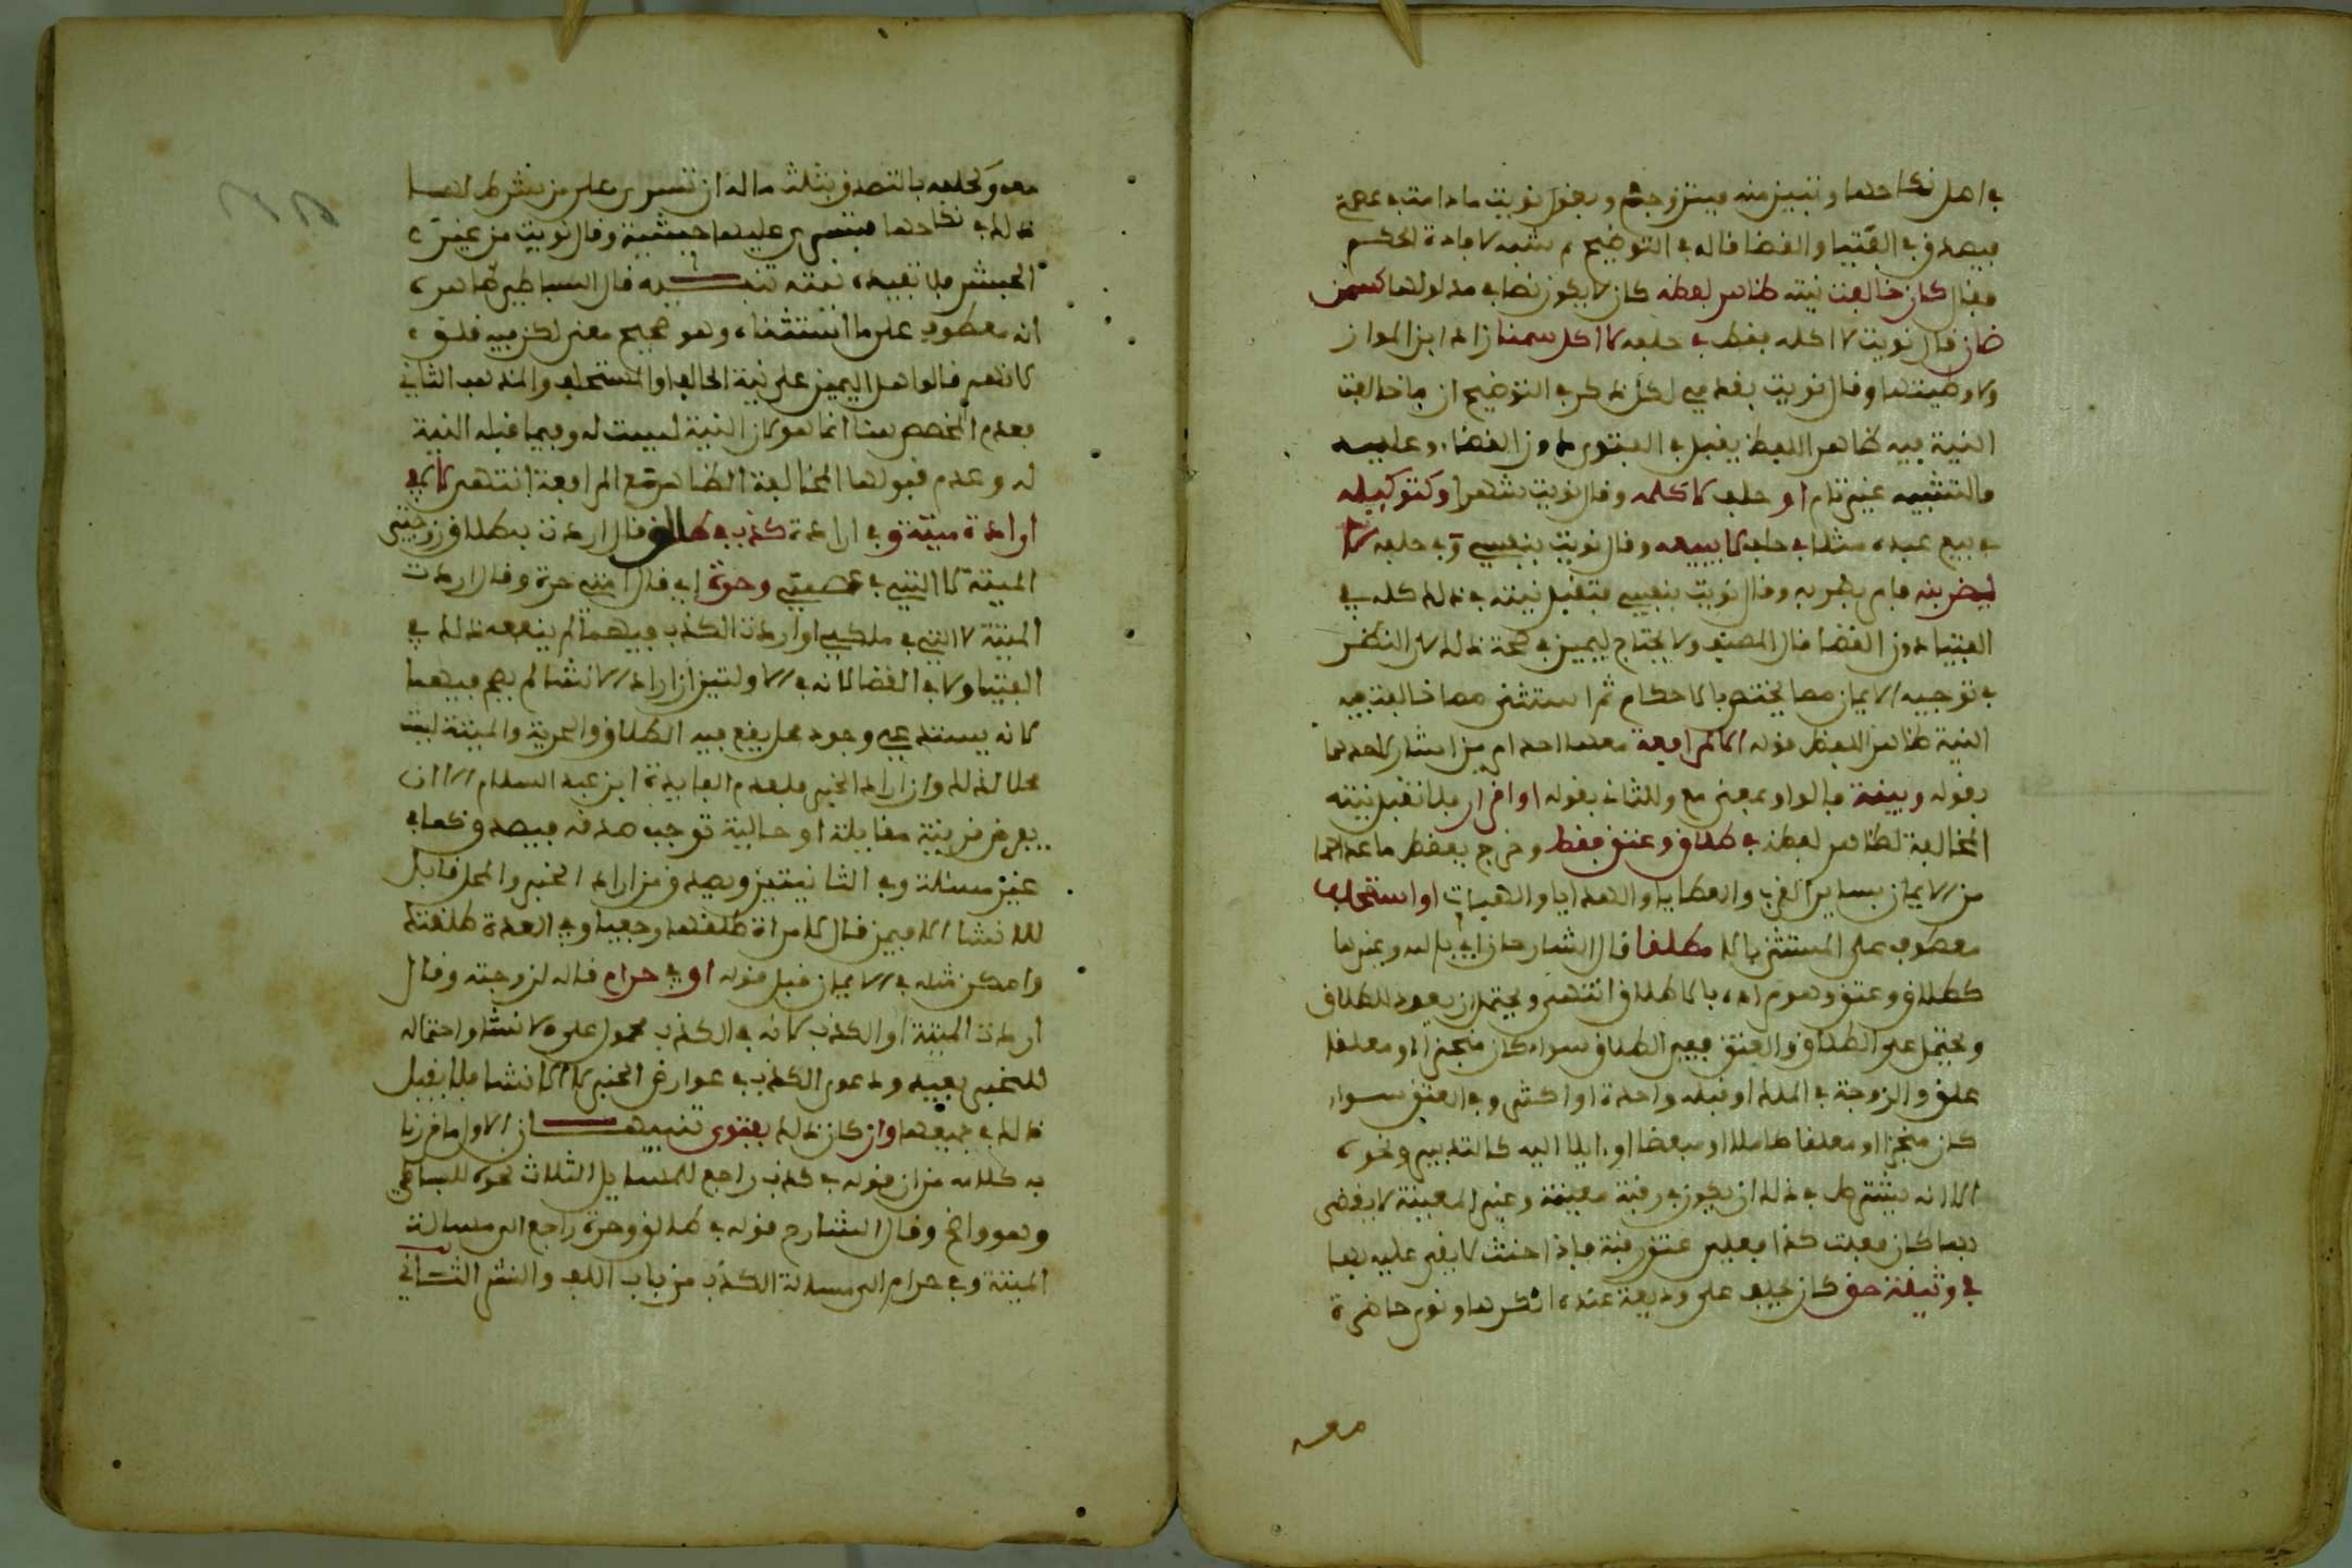 في اصل نكاحها وتبين منه فيتزوجها ويقول نويت ما دامت في عصمة
فيصدق في الفتيا والقضا قاله في التوضيح ثم شبه لافادة الحكم
فقال كان خالفت نيته ظاهر لفظه كان لا يكون نصا في مدلولها كسمن
ضان قال نويت لا اكله فقط في حلفه لا اكل سمنا زاد ابن المواز
ولا وطيتها وقال نويت بقدمي لكن ذكر في التوضيح ان ما خالفت
النية فيه ظاهر اللفظ يقبل في الفتوى دون القضا وعليه
فالتشبيه غير تام او حلف لا كلمه وقال نويت شهرا وكتوكيله
في بيع عبده مثلا في حلفه لا يبيعه وقال نويت بنفسي و في حلفه لا
ليضربنه فامر بضربه وقال نويت بنفسي فتقبل نيته في ذلك كله في
الفتيا دون القضا قال المصنف ولا يحتاج ليمين في صحة ذلك لان النظر
في توجيه الايمان مما يختص بالاحكام ثم استثنى مما خالفت فيه
النية ظاهر اللفظ قوله الا لمرافعة معها احد امرين اشار لاحدهما
بقوله وبينة فالواو بمعنى مع وللثاني بقوله او اقرار فلا تقبل نيته
المخالفة لظاهر لفظه في طلاق وعتق فقط وخرج بفقط ما عداهما
من الايمان بساير القرب والعطايا والهدايا والهبات او استحلف
معطوف على المستثنى بالا مطلقا قال الشارحان اي بالله وبغيرها
كطلاق وعتق وهو مراده بالاطلاق انتهى ويحتمل ان يعود للطلاق
ويحتمل على الطلاق والعتق ففي الطلاق سواء كان منجزا او معلقا
علق والزوجة في الملك او قبله واحدة او اكثر وفي العتق سواء
كان منجزا او معلقا كاملا او مبعضا او ايلا اليه كالتدبير ونحوه
الا انه يشترط في ذلك ان يكون في رقبة معينة وغير المعينة لا يقضى
بها كان فعلت كذا فعلي عتق رقبة فاذا حنث لا يقضى عليه بها
في وثيقة حق كان يحلف على وديعة عنده انكرها ونوى حاضرة
معه
معه وكحلفه بالتصدق بثلث ماله ان تسرى على من شرط لها
ذلك في نكاحها فتسرى عليها حبشية وقال نويت من غير
الحبش فلا تفيده نيته تنبيه قال البساطي ظاهره
انه معطوف على ما استثناه وهو صحيح معنى لكن فيه قلق
لانهم قالوا هل اليمين على نية الحالف او المستحلف والمذهب الثاني
فعدم المخصص هنا انما هو لان النية ليست له وفيما قبله النية
له وعدم قبولها لمخالفة الظاهر مع المرافعة انتهى لا في
ارادة ميتة و في ارادة كذب في طالق قال اردت بطلاق زوجتي
الميتة لا التي في عصمتي وحرة اي قال امتي حرة وقال اردت
الميتة لا التي في ملكي او اردت الكذب فيهما لم ينفعه ذلك في
الفتيا ولا في القضا لانه في الاولتين ان اراد الانشا لم يصح فيهما
لانه يستدعي وجود محل يقع فيه الطلاق والحرية والميتة ليت
محلا لذلك وان اراد الخبر فلعدم الفايدة ابن عبد السلام الا ان
يعرض قرينة مقابلة او حالية توجب صدقه فيصدق كما في
غير مسئلة وفي الثانيتين ويصدق من اراد الخبر والمحل قابل
للانشا الا فيمن قال لامراة طلقتها رجعيا وفي العدة طلقتك
وامكن مثله في الايمان قبل قوله او في حرام قاله لزوجته وقال
اردت الميتة او الكذب لانه في الكذب محمول على الانشا واحتماله
للخبر بعيد ودعوى الكذب في عوارض الخبر لا الانشا فلا يقبل
ذلك في جميعها وان كان ذلك بفتوى تنبيهان الاول ما قررنا
به كلامه من ان قوله في كذب راجع للمسايل الثلاث نحوه للبساطي
وهو واضح وقال الشارح قوله في طالق وحرة راجع الى مسالة
الميتة وفي حرام الى مسالة الكذب من باب اللف والنشر الثاني